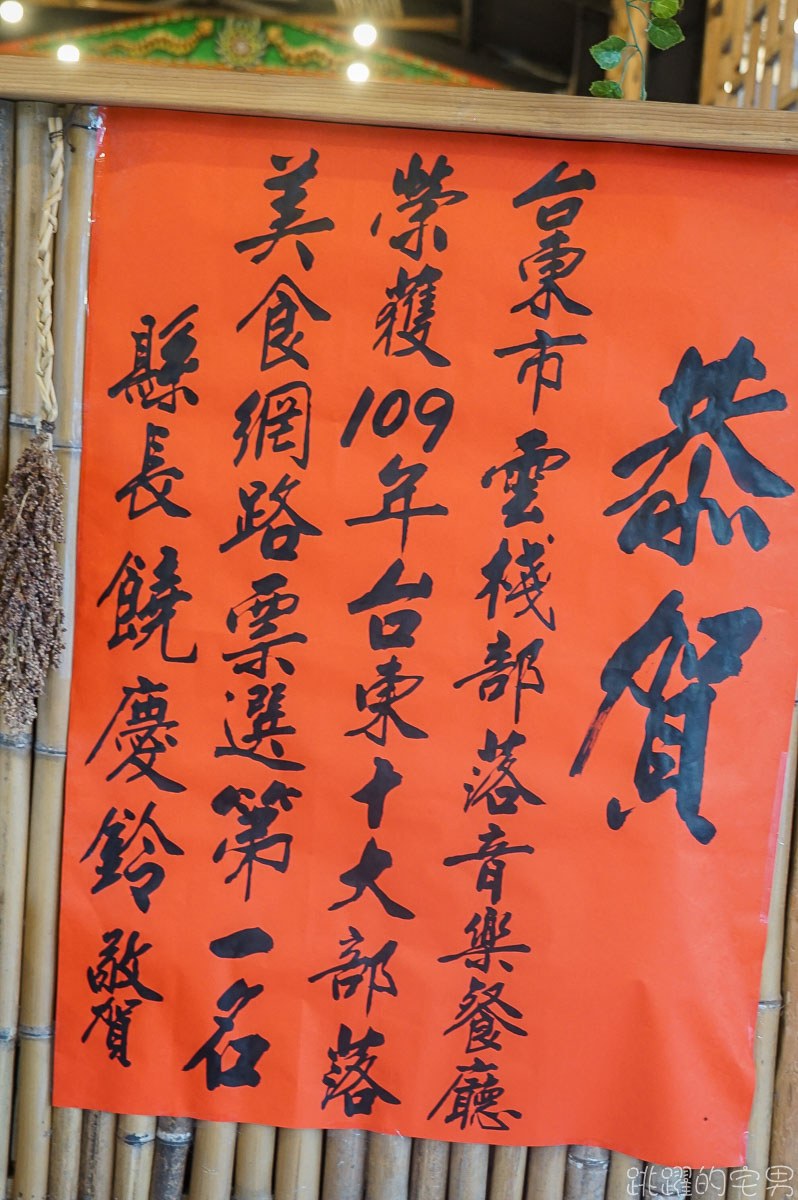 恭賀
台東市雲棧部落音樂餐廳
榮獲109年台東十大部落
美食網路票選第一名
縣長饒慶鈴敬賀
跳躍的宅男